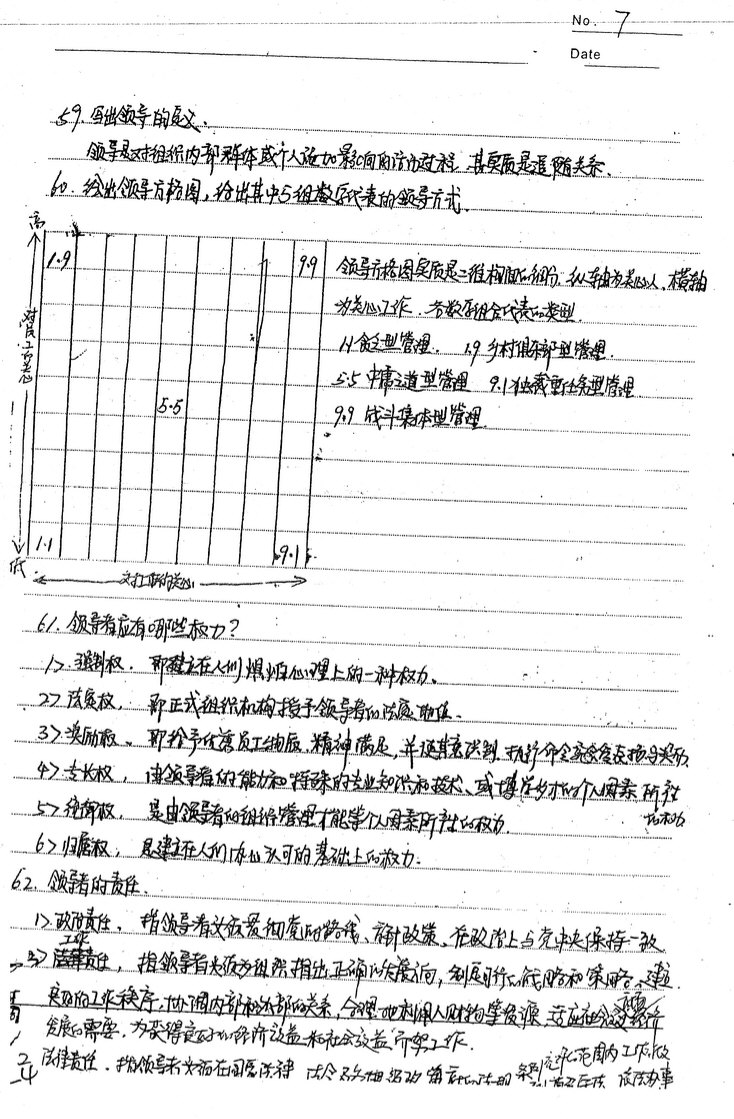 No. 7
Date
59. 写出领导的定义.
领导是对组织内部群体或个人施加影响的活动过程. 其实质是追随关系.
60. 绘出领导方格图, 给出其中5组数字代表的领导方式.
高
1.9
9.9
领导方格图实质是二维构面的细分. 纵轴为关心人, 横轴
对员工的关心
为关心工作. 各数字组合代表的类型.
1.1 贫乏型管理. 1.9 乡村俱乐部型管理.
5.5
5.5 中庸之道型管理 9.1 独裁重任务型管理
9.9 战斗集体型管理
1.1
9.1
低
对工作的关心
61. 领导者应有哪些权力?
1> 强制权. 即建立在人们惧怕心理上的一种权力.
2> 法定权, 即正式组织机构授予领导者的法定地位.
3> 奖励权. 即给予 员工物质、精神满足, 并使其意识到 执行命令会
4> 专长权, 由领导者的能力和特殊的专业知识和技术、或博学多才的个人因素所产
生的权力
5> 统御权, 是由领导者的组织管理才能等个人因素所产生的权力.
6> 归属权, 是建立在人们内心认可的基础上的权力.
62. 领导者的责任.
1> 政治责任. 指领导者必须贯彻党的路线、方针政策、在政治上与党中央保持一致
工作
3> 责任, 指领导者 为组织指出正确的发展方向, 制定可行的战略和策略、建立
良好的工作秩序, 协调内部和外部的关系, 合理地利用人财物等资源, 适应社会 经济
发展的需要, 为获得良好的经济效益和社会效益而努力工作.
2 法律责任. 指领导者必须在国家法律 法令 范围内工作,
4